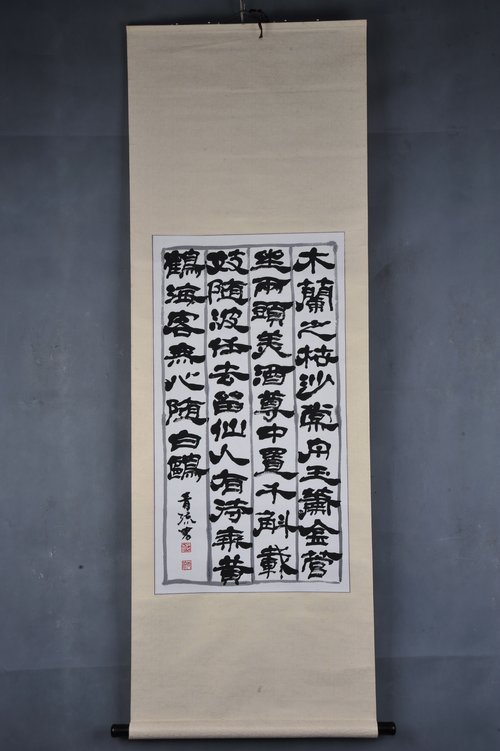 木蘭之枻沙棠舟玉簫金管
坐兩頭美酒尊中置千斛載
妓隨波任去留仙人有待乘黃
鶴海客無心随白鷗
青流书